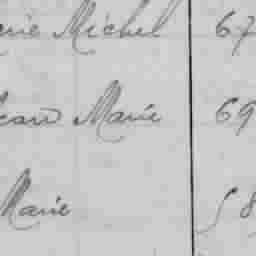 Michel 67
Jean Marie 69
Marie 58